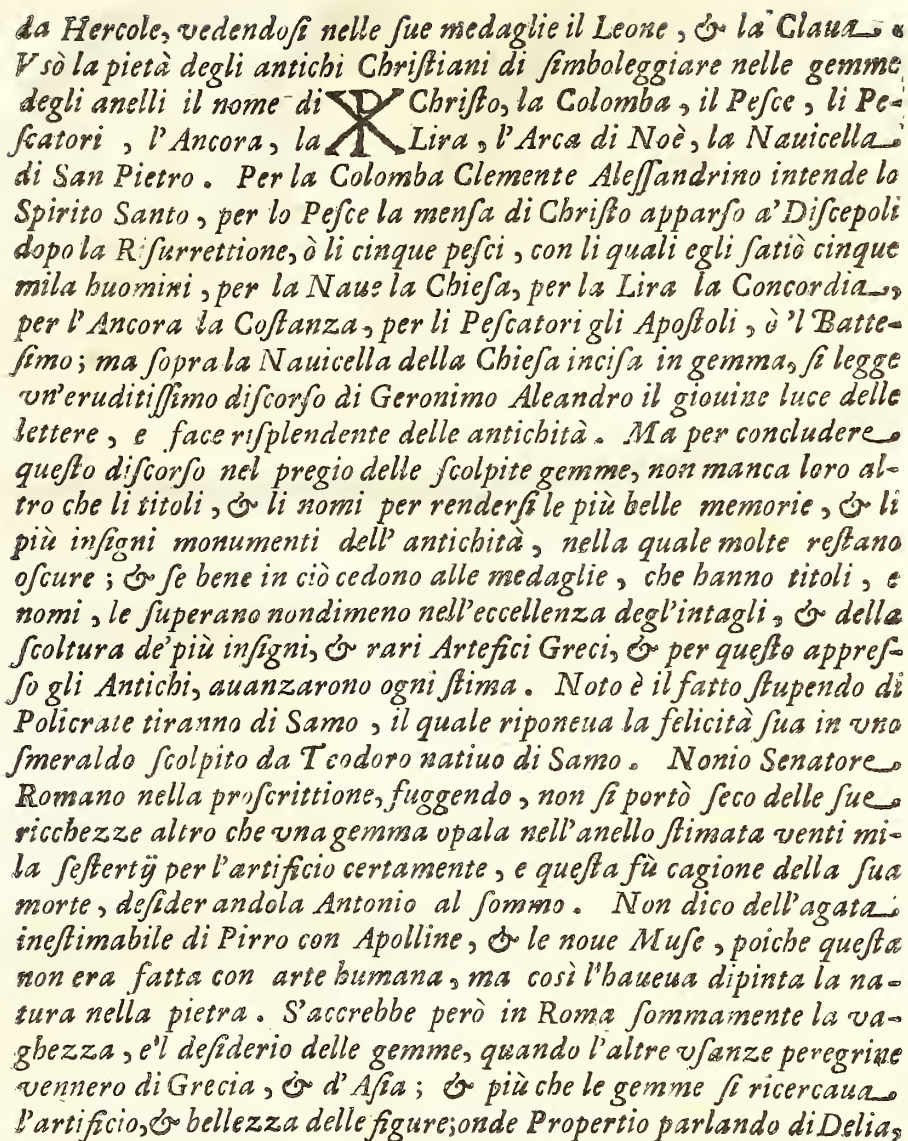 da Hercole, vedendoſi nelle ſue medaglie il Leone, & la Claua.
Vsò la pietà degli antichi Chriſtiani di ſimboleggiare nelle gemme
degli anelli il nome di ☧ Chriſto, la Colomba, il Peſce, li Pe-
ſcatori, l'Ancora, la Lira, l'Arca di Noè, la Nauicella
di San Pietro. Per la Colomba Clemente Aleſſandrino intende lo
Spirito Santo, per lo Peſce la menſa di Chriſto apparſo a' Diſcepoli
dopo la Riſurrettione, ò li cinque peſci, con li quali egli ſatiò cinque
mila huomini, per la Naue la Chieſa, per la Lira la Concordia,
per l'Ancora la Coſtanza, per li Peſcatori gli Apoſtoli, ò 'l Batte-
ſimo; ma ſopra la Nauicella della Chieſa inciſa in gemma, ſi legge
vn'eruditiſſimo diſcorſo di Geronimo Aleandro il giouine luce delle
lettere, e face riſplendente delle antichità. Ma per concludere
queſto diſcorſo nel pregio delle ſcolpite gemme, non manca loro al-
tro che li titoli, & li nomi per renderſi le più belle memorie, & li
più inſigni monumenti dell' antichità, nella quale molte reſtano
oſcure; & ſe bene in ciò cedono alle medaglie, che hanno titoli, e
nomi, le ſuperano nondimeno nell'eccellenza degl'intagli, & della
ſcoltura de' più inſigni, & rari Artefici Greci, & per queſto appreſ-
ſo gli Antichi, auanzarono ogni ſtima. Noto è il fatto ſtupendo di
Policrate tiranno di Samo, il quale riponeua la felicità ſua in vno
ſmeraldo ſcolpito da Teodoro natiuo di Samo. Nonio Senatore
Romano nella proſcrittione, fuggendo, non ſi portò ſeco delle ſue
ricchezze altro che vna gemma opala nell'anello ſtimata venti mi-
la ſeſtertij per l'artificio certamente, e queſta fù cagione della ſua
morte, deſiderandola Antonio al ſommo. Non dico dell'agata
ineſtimabile di Pirro con Apolline, & le noue Muſe, poiche queſta
non era fatta con arte humana, ma così l'haueua dipinta la na-
tura nella pietra. S'accrebbe però in Roma ſommamente la va-
ghezza, e'l deſiderio delle gemme, quando l'altre vſanze peregrine
vennero di Grecia, & d'Aſia; & più che le gemme ſi ricercaua
l'artificio, & bellezza delle figure; onde Propertio parlando di Delia,